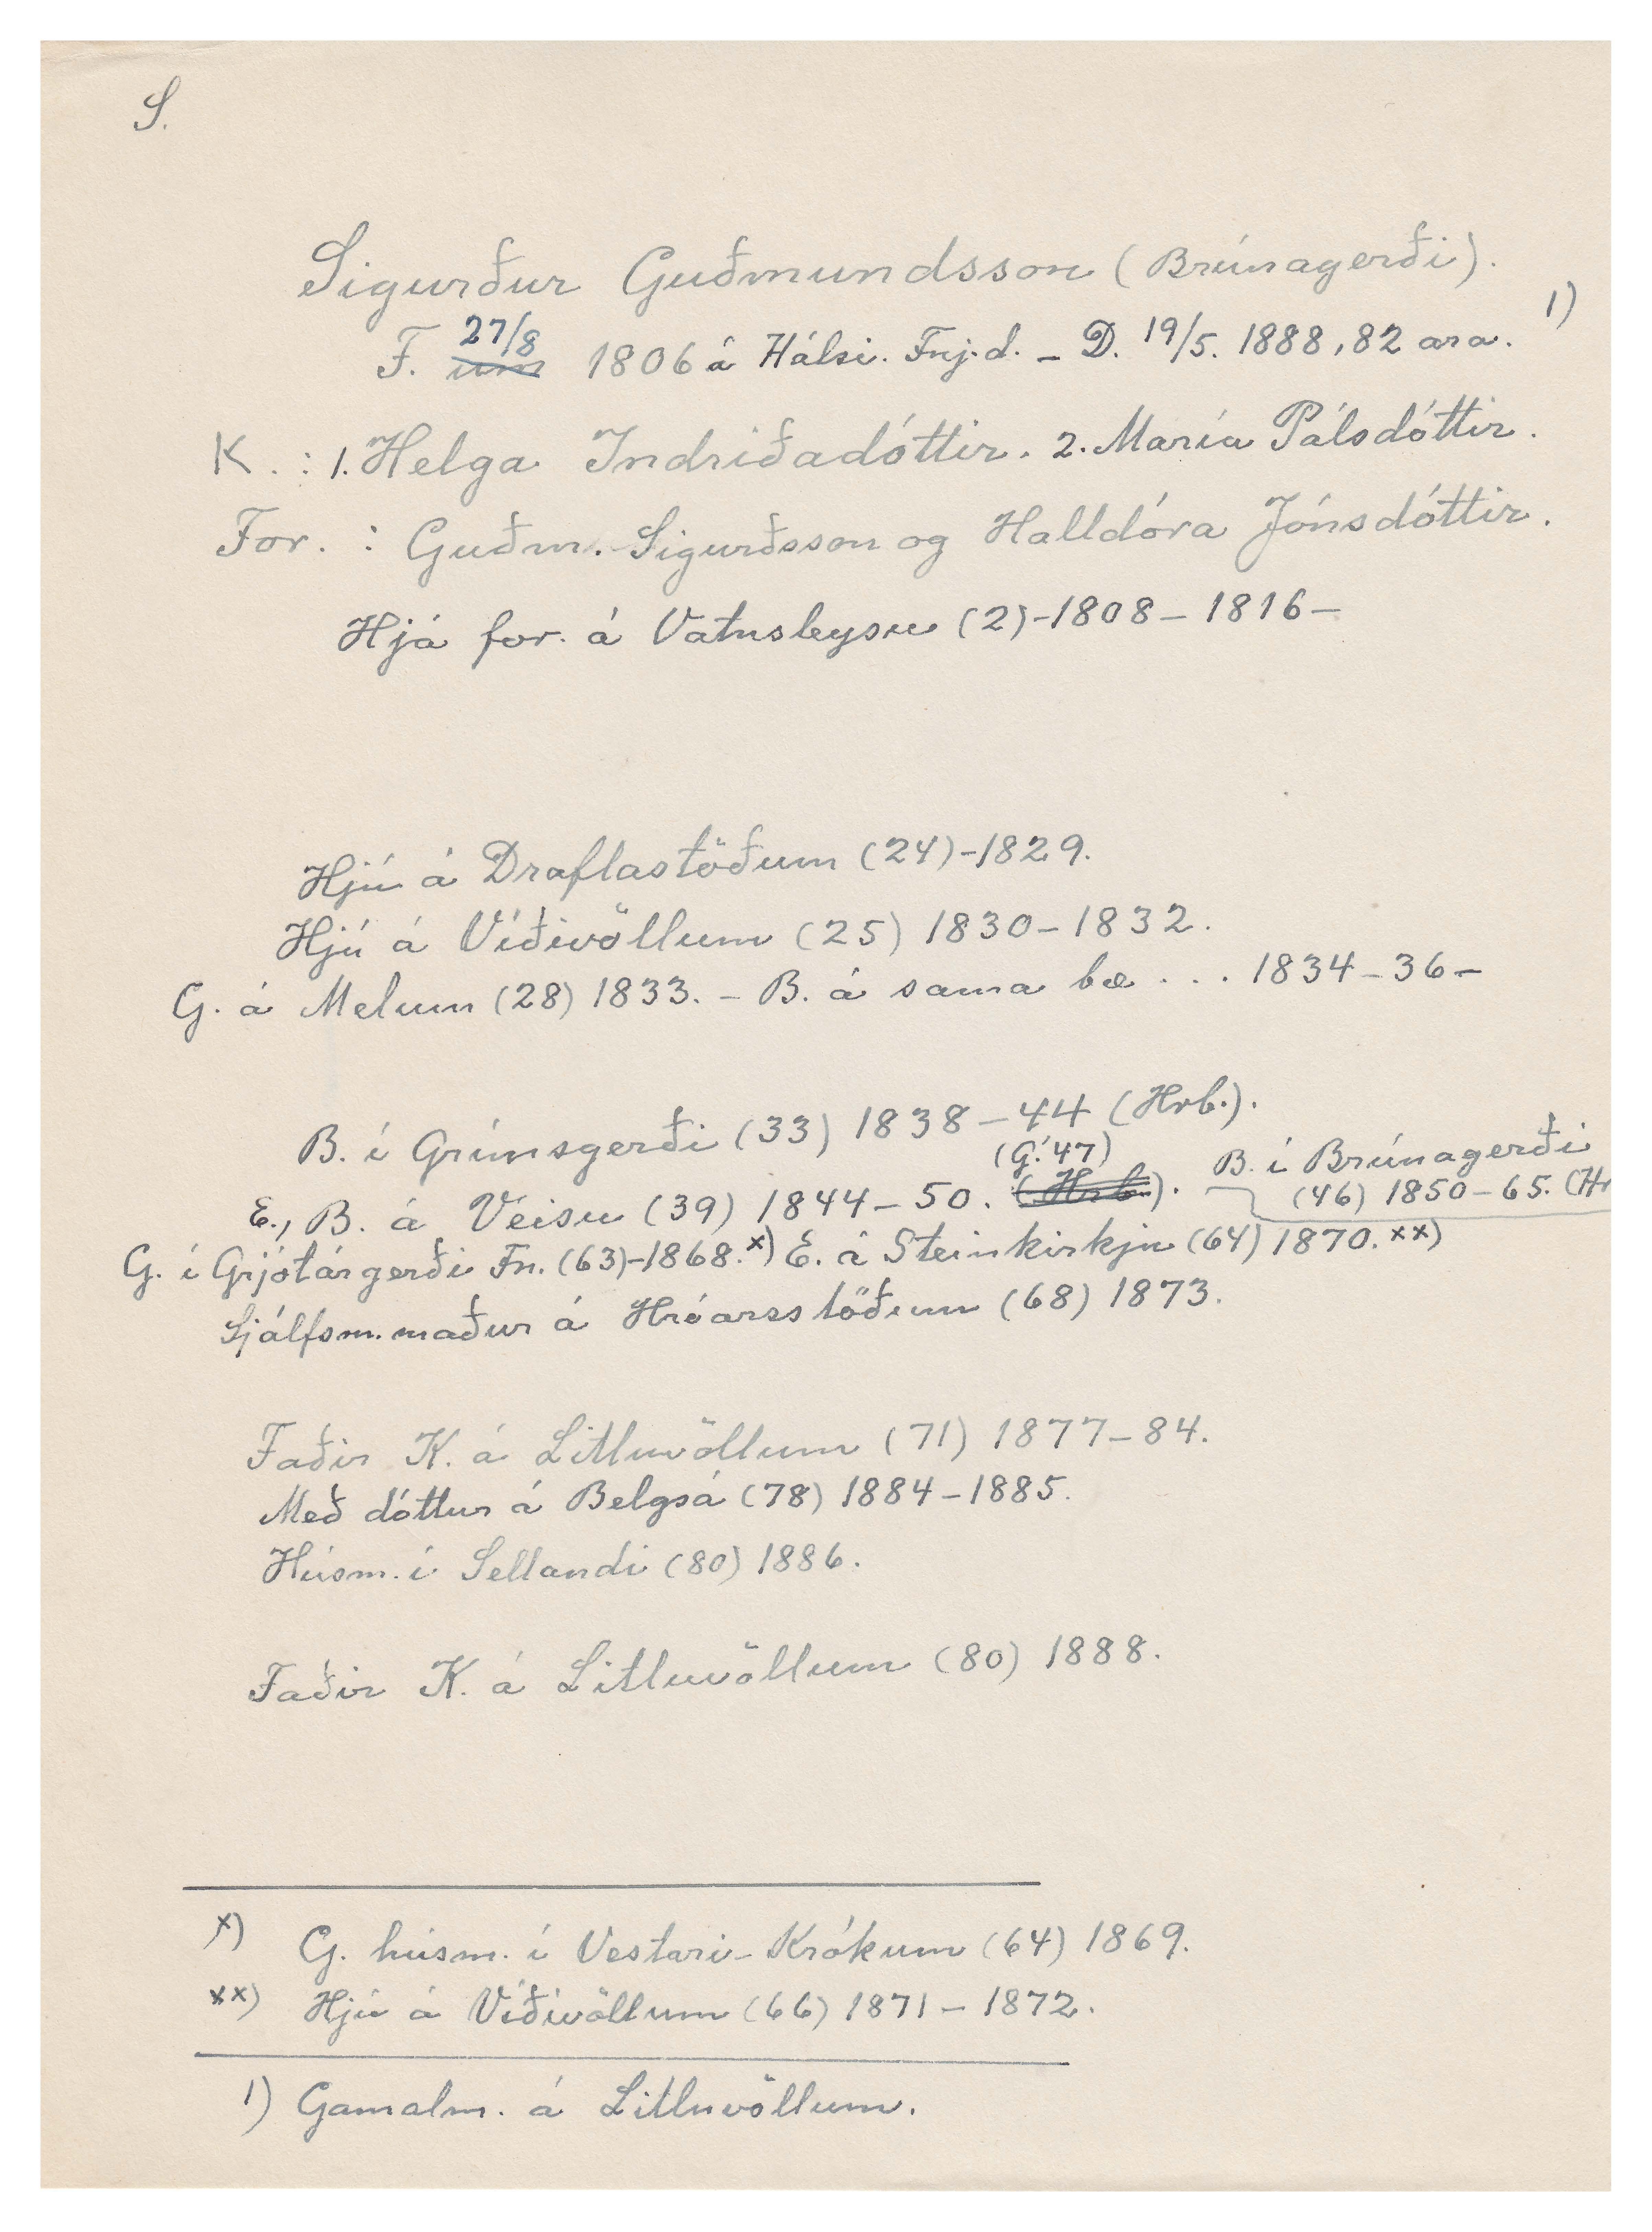 S.
Sigurður Guðmundsson (Brúnagerði).
F. um 27/8 1806 á Hálsi. Fnj.d. – D. 19/5. 1888, 82 ara. 1)
K. : 1. Helga Indriðadóttir. 2. María Pálsdóttir.
For. : Guðm. Sigurðsson og Halldóra Jónsdóttir.
Hjá for. á Vatnsleysu (2)-1808 – 1816 –
Hjú á Draflastöðum (24)-1829.
Hjú á Víðivöllum (25) 1830 – 1832.
G. á Melum (28) 1833. – B. á sama bæ . . . 1834 – 36 –
B. í Grímsgerði (33) 1838 – 44 (Hrb.).
(G.'47)
E., B. á Veisu (39) 1844 – 50. (Hrb.). B. í Brúnagerði
(46) 1850 – 65. (Hr
G. í Grjótárgerði Fn. (63)-1868. x) E. á Steinkirkju (64) 1870. xx)
Sjálfsm.maður á Hróarsstöðum (68) 1873.
Faðir K. á Litluvöllum (71) 1877 – 84.
Með dóttur á Belgsá (78) 1884 – 1885.
Húsm. í Sellandi (80) 1886.
Faðir K. á Litluvöllum (80) 1888.
x) G. húsm. í Vestari-Krókum (64) 1869.
xx) Hjú á Víðivöllum (66) 1871 – 1872.
1) Gamalm. á Litluvöllum.